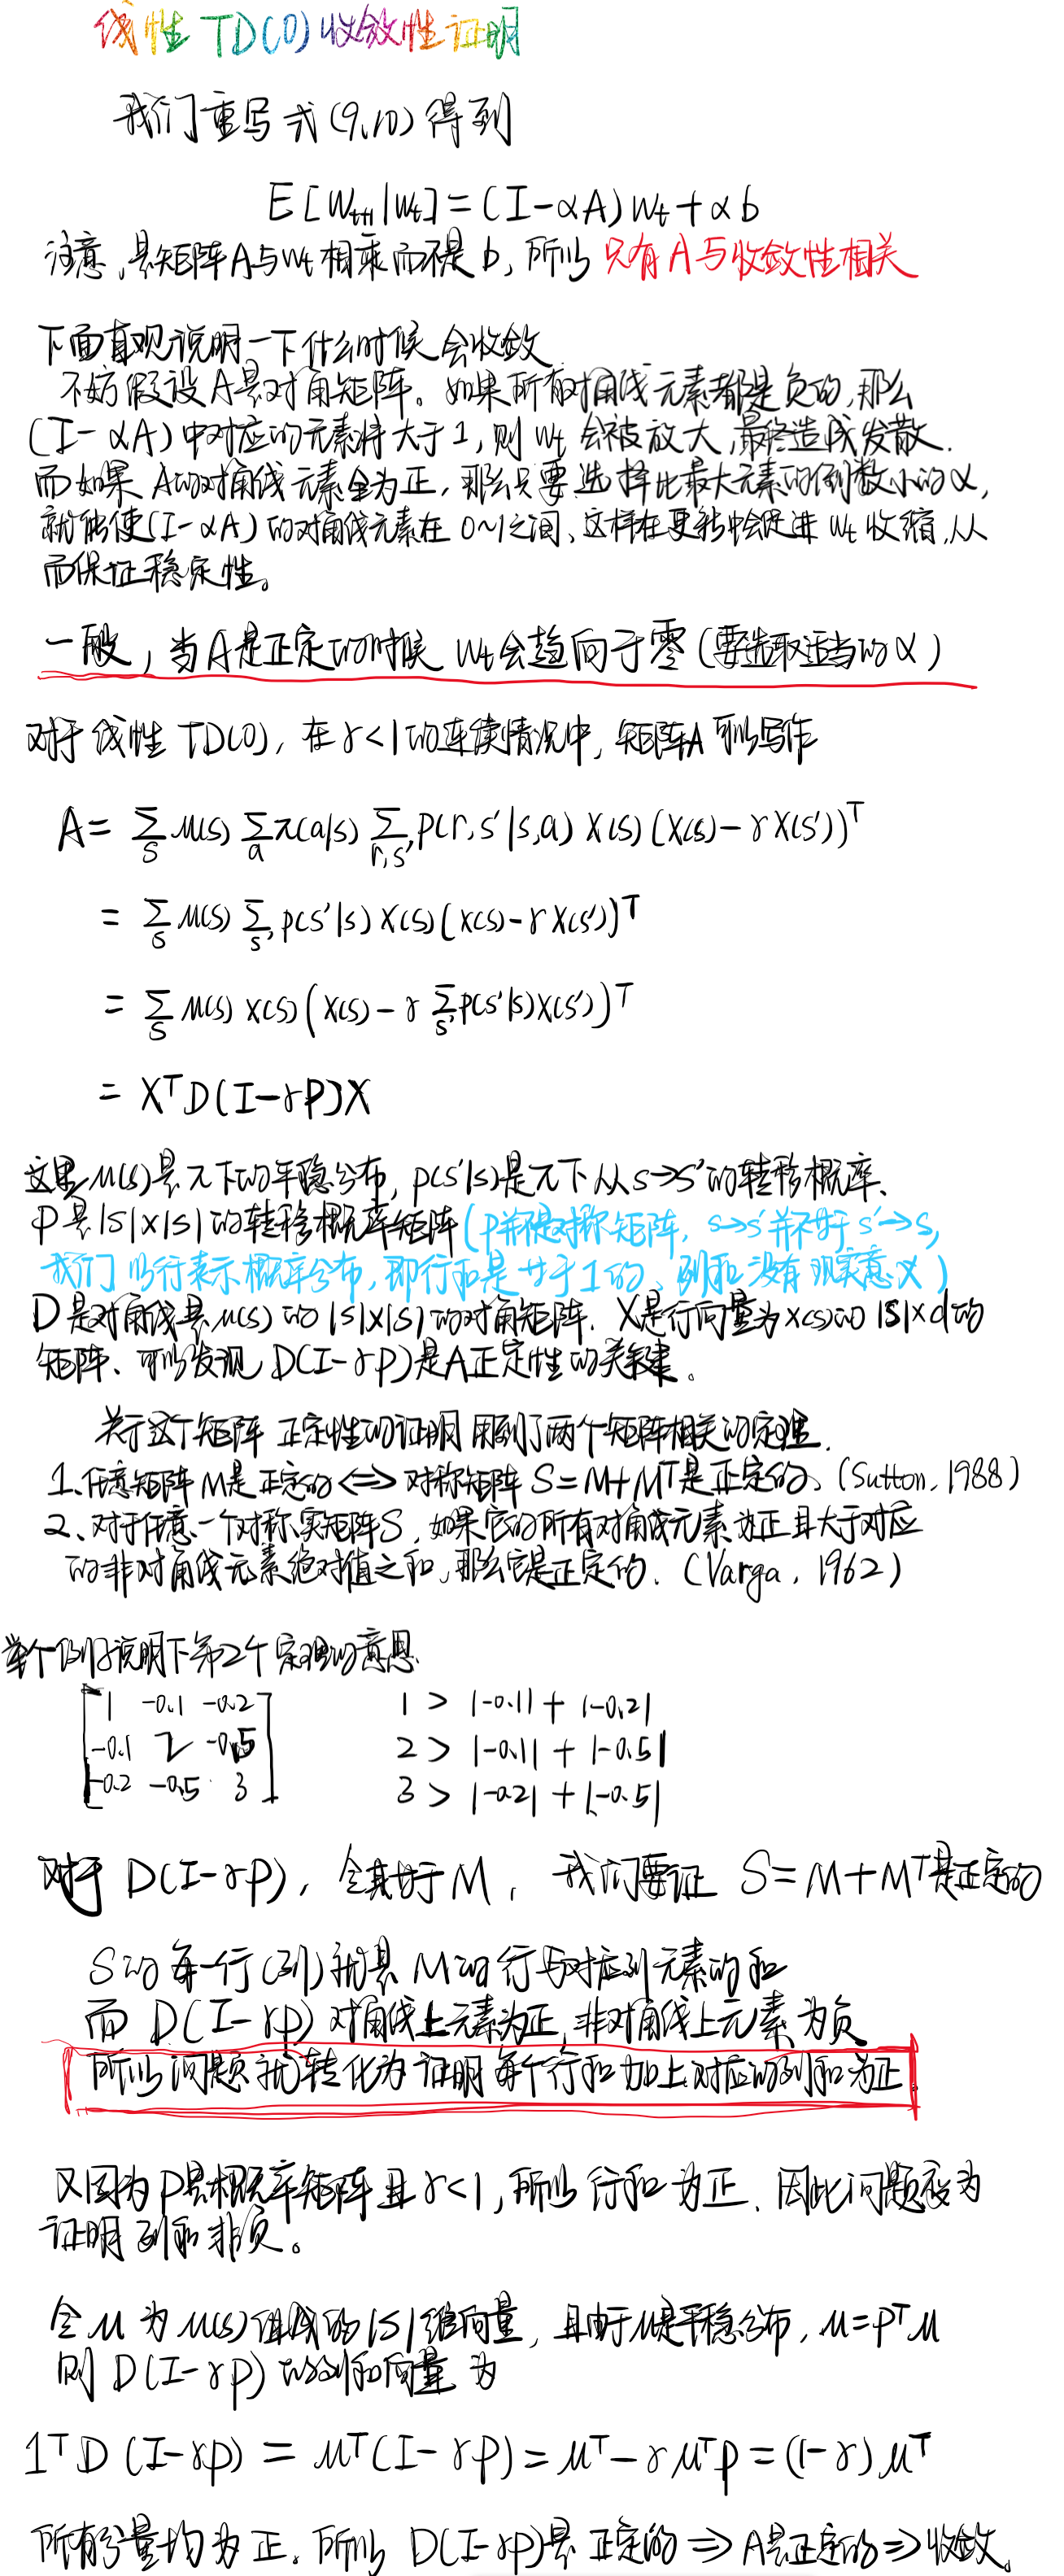 线性 TD(0)收敛性证明
我们重写式(9,10)得到
E[W_{t+1}|W_t]=(I-αA)W_t+αb
注意,是矩阵A与W_t相乘而不是b,所以 只有A与收敛性相关
下面直观说明一下什么时候会收敛
不妨假设A是对角矩阵。如果所有对角线元素都是负的,那么
(I-αA)中对应的元素将大于1,则W_t会被放大,最终造成发散.
而如果A的对角线元素全为正,那么只要选择比最大元素的倒数小的α,
就能使(I-αA)的对角线元素在0~1之间、这样在更新中会促进W_t收缩,从
而保证稳定性。
一般,当A是正定的时候W_t会趋向于零(要选取适当的α)
对于线性TD(0),在γ<1的连续情况中,矩阵A可以写作
A= ∑_s μ(s) ∑_a π(a|s) ∑_{r,s'} p(r,s'|s,a) X(s)(X(s)-γX(s'))^T
= ∑_s μ(s) ∑_{s'} p(s'|s) X(s)(X(s)-γX(s'))^T
= ∑_s μ(s) X(s)(X(s)-γ∑_{s'}p(s'|s)X(s'))^T
= X^T D(I-γP)X
这里μ(s)是π下的平稳分布,p(s'|s)是π下从s→s'的转移概率、
P是|S|×|S|的转移概率矩阵(P并不是对称矩阵,s→s'并不等于s'→s,
我们以行表示概率分布,即行和是等于1的、列和没有现实意义)
D是对角线是μ(s)的|S|×|S|的对角矩阵. X是行向量为x(s)的|S|×d的
矩阵、可以发现D(I-γP)是A正定性的关键。
关于这个矩阵正定性的证明用到了两个矩阵相关的定理.
1.任意矩阵M是正定的⟺对称矩阵S=M+M^T是正定的、(Sutton,1988)
2、对于任意一个对称实矩阵S,如果它的所有对角线元素为正且大于对应
的非对角线元素绝对值之和,那么它是正定的.(Varga,1962)
举个例子说明下第2个定理的意思
1 -0.1 -0.2 1 > |-0.1|+|-0.2|
-0.1 2 -0.5 2 > |-0.1|+|-0.5|
-0.2 -0.5 3 3 > |-0.2|+|-0.5|
对于D(I-γP),令其等于M, 我们要证 S=M+M^T是正定的
S的每一行(列)就是M的行与对应列元素的和
而D(I-γP)对角线上元素为正,非对角线上元素为负
所以问题就转化为证明每个行和加上对应的列和为正
又因为P是概率矩阵且γ<1,所以行和为正、因此问题变为
证明列和非负。
令μ为μ(s)组成的|S|维向量,且由于μ是平稳分布,μ=P^Tμ
则D(I-γP)的列和向量为
1^T D(I-γP)=μ^T(I-γP)=μ^T-γμ^TP=(1-γ)μ^T
所有分量均为正.所以D(I-γP)是正定的⇒A是正定的⇒收敛。